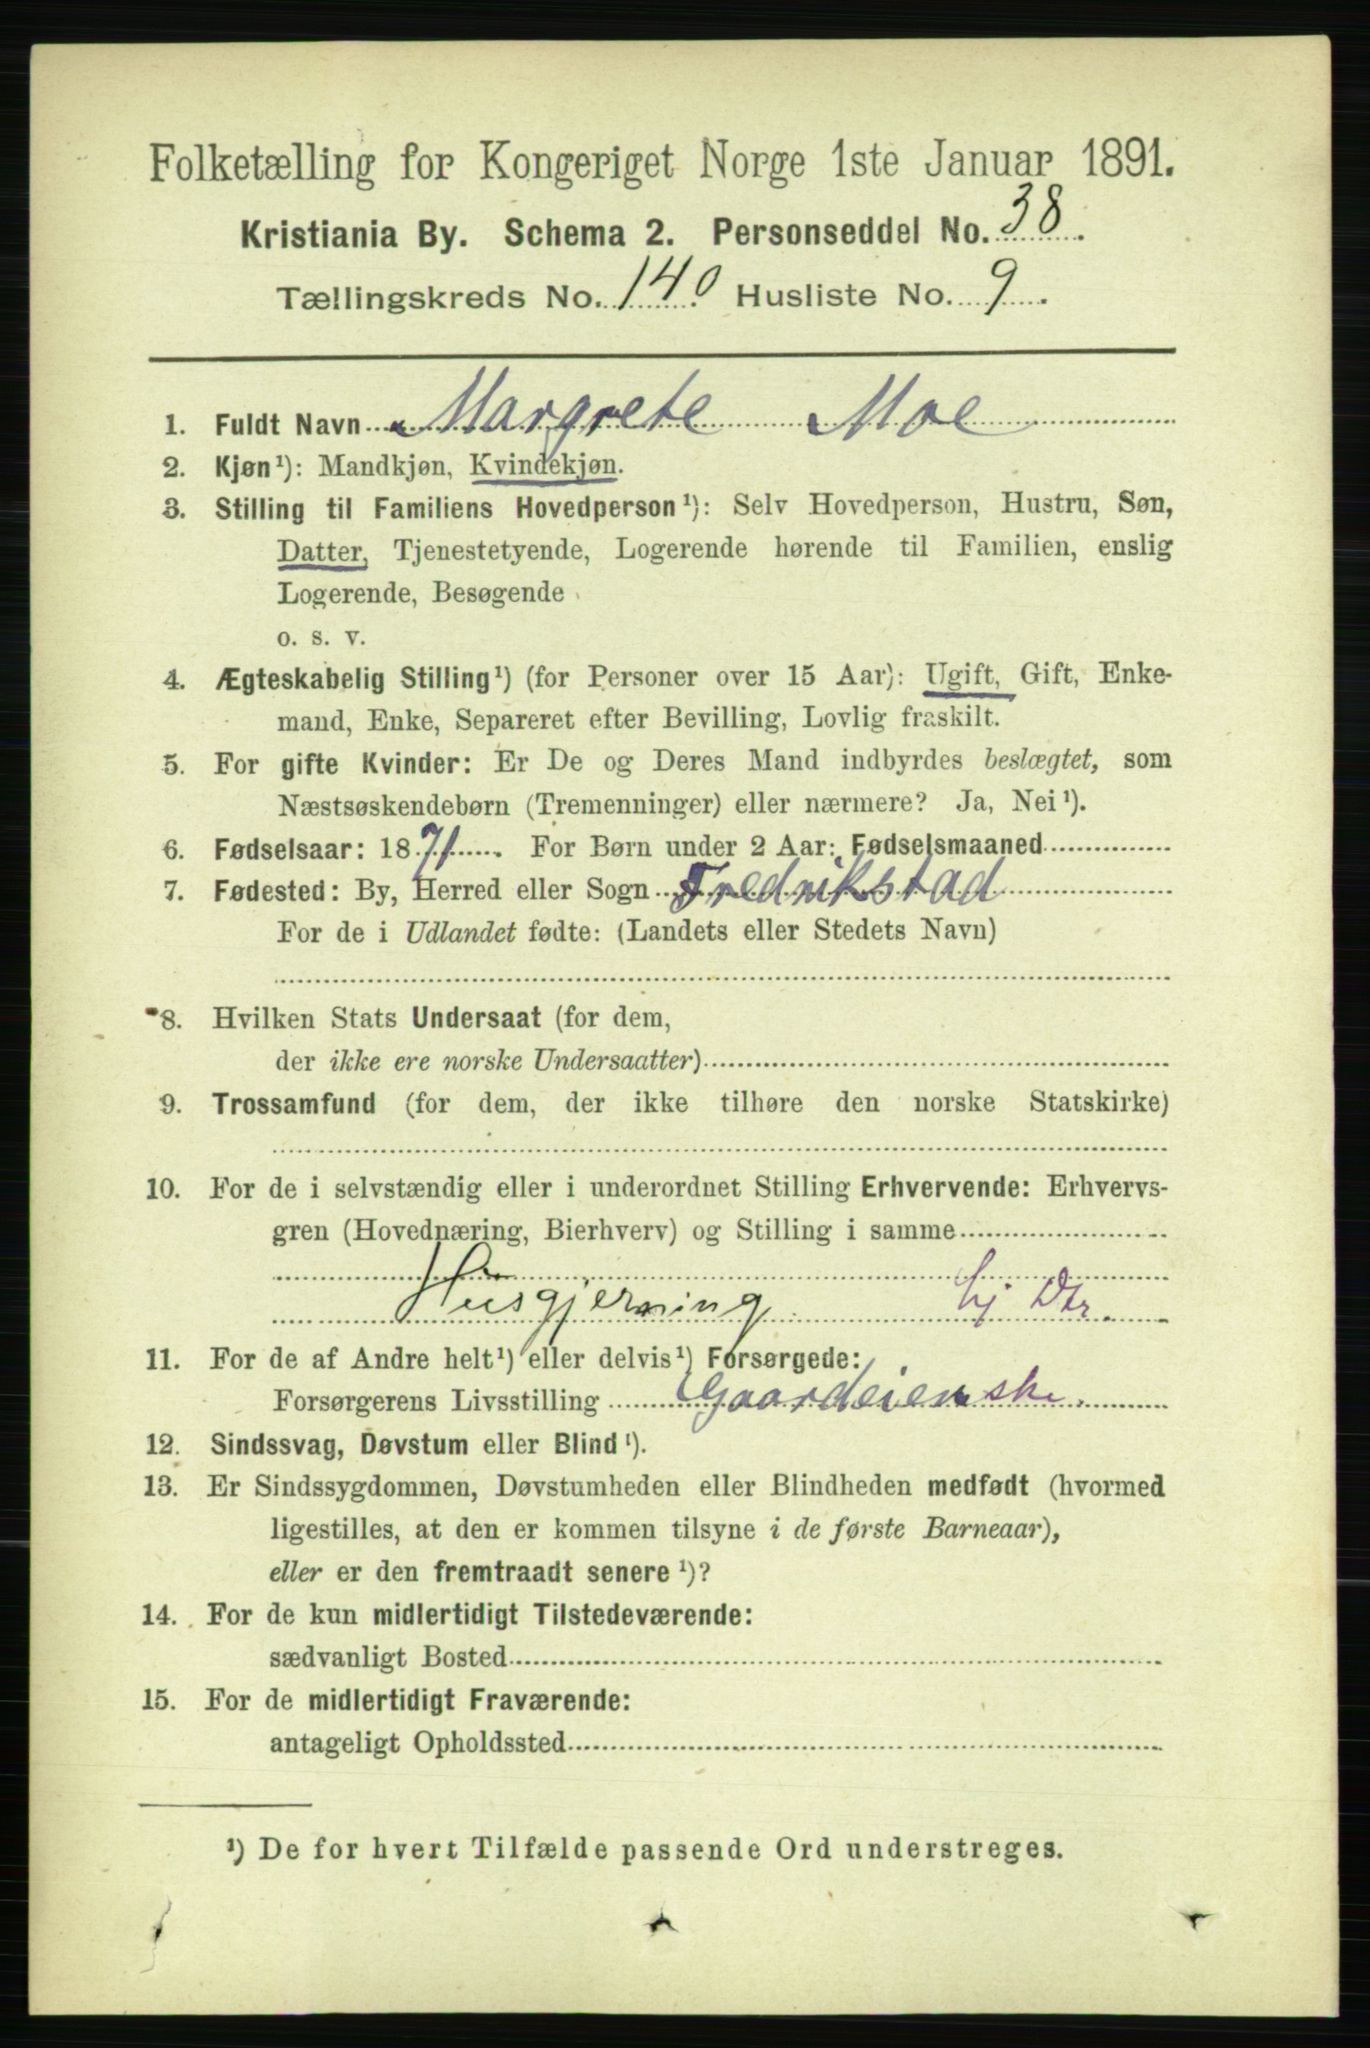 Folketælling for Kongeriget Norge 1ste Januar 1891.
Kristiania By. Schema 2. Personseddel No. 38.
Tællingskreds No. 140 Husliste No. 9.
1. Fuldt Navn Margrete Moe
2. Kjøn¹): Mandkjøn, Kvindekjøn.
3. Stilling til Familiens Hovedperson¹): Selv Hovedperson, Hustru, Søn,
Datter, Tjenestetyende, Logerende hørende til Familien, enslig
Logerende, Besøgende
o. s. v.
4. Ægteskabelig Stilling¹) (for Personer over 15 Aar): Ugift, Gift, Enke-
mand, Enke, Separeret efter Bevilling, Lovlig fraskilt.
5. For gifte Kvinder: Er De og Deres Mand indbyrdes beslægtet, som
Næstsøskendebørn (Tremenninger) eller nærmere? Ja, Nei¹).
6. Fødselsaar: 1871. For Børn under 2 Aar: Fødselsmaaned
7. Fødested: By, Herred eller Sogn Fredrikstad
For de i Udlandet fødte: (Landets eller Stedets Navn)
8. Hvilken Stats Undersaat (for dem,
der ikke ere norske Undersaatter)
9. Trossamfund (for dem, der ikke tilhøre den norske Statskirke)
10. For de i selvstændig eller i underordnet Stilling Erhvervende: Erhvervs-
gren (Hovednæring, Bierhverv) og Stilling i samme
Husgjerning Dtr.
11. For de af Andre helt¹) eller delvis¹) Forsørgede:
Forsørgerens Livsstilling Gaardeierske.
12. Sindssvag, Døvstum eller Blind¹).
13. Er Sindssygdommen, Døvstumheden eller Blindheden medfødt (hvormed
ligestilles, at den er kommen tilsyne i de første Barneaar),
eller er den fremtraadt senere¹)?
14. For de kun midlertidigt Tilstedeværende:
sædvanligt Bosted
15. For de midlertidigt Fraværende:
antageligt Opholdssted
¹) De for hvert Tilfælde passende Ord understreges.